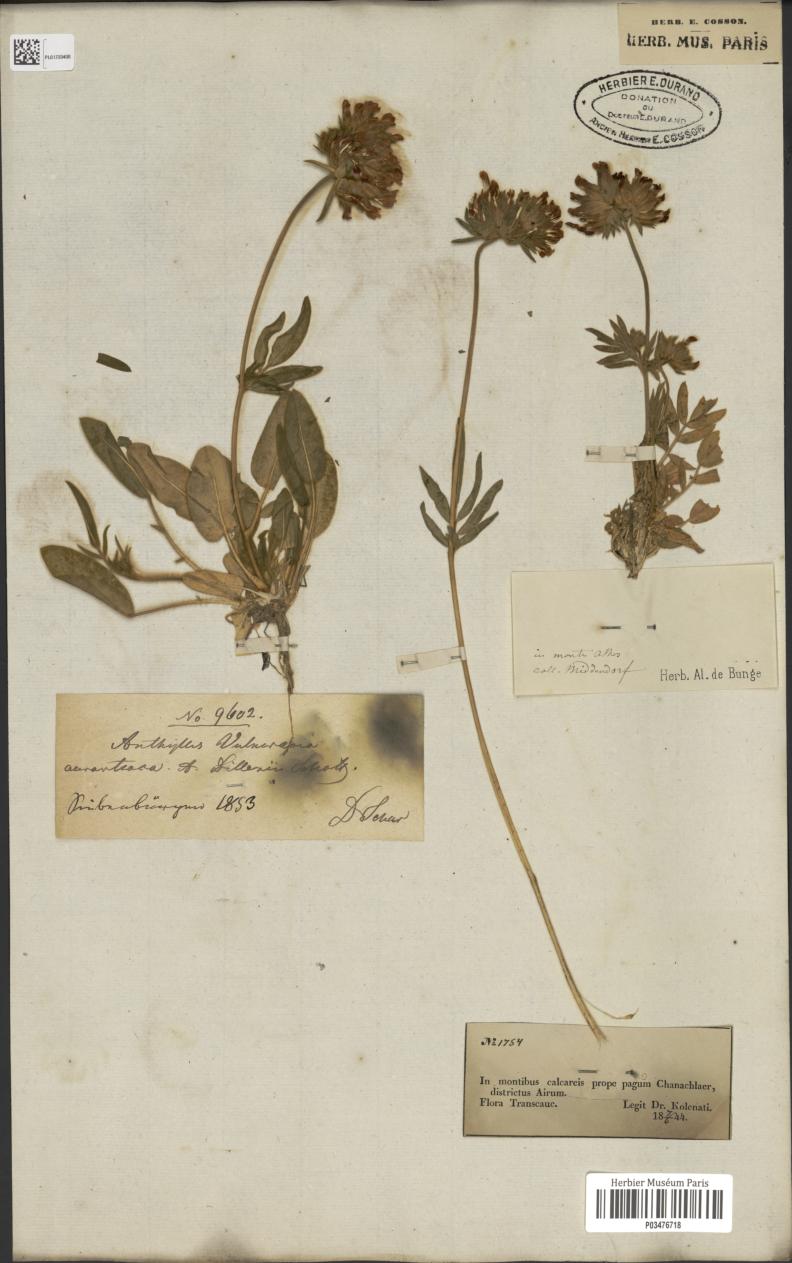 HERB. E. COSSON.
HERB. MUS. PARIS
HERBIER E. DURAND
DONATION
DU
DOCTEUR E. DURAND
ANCIEN HERBIER E. COSSON
in monte Athos
coll. Middendorf
Herb. Al. de Bunge
No 9602.
Anthyllis Vulneraria
A. Dillenii
1853
Nº 1754
In montibus calcareis prope pagum Chanachlaer,
districtus Airum.
Flora Transcauc.
Legit Dr. Kolenati.
Herbier Muséum Paris
P03476718